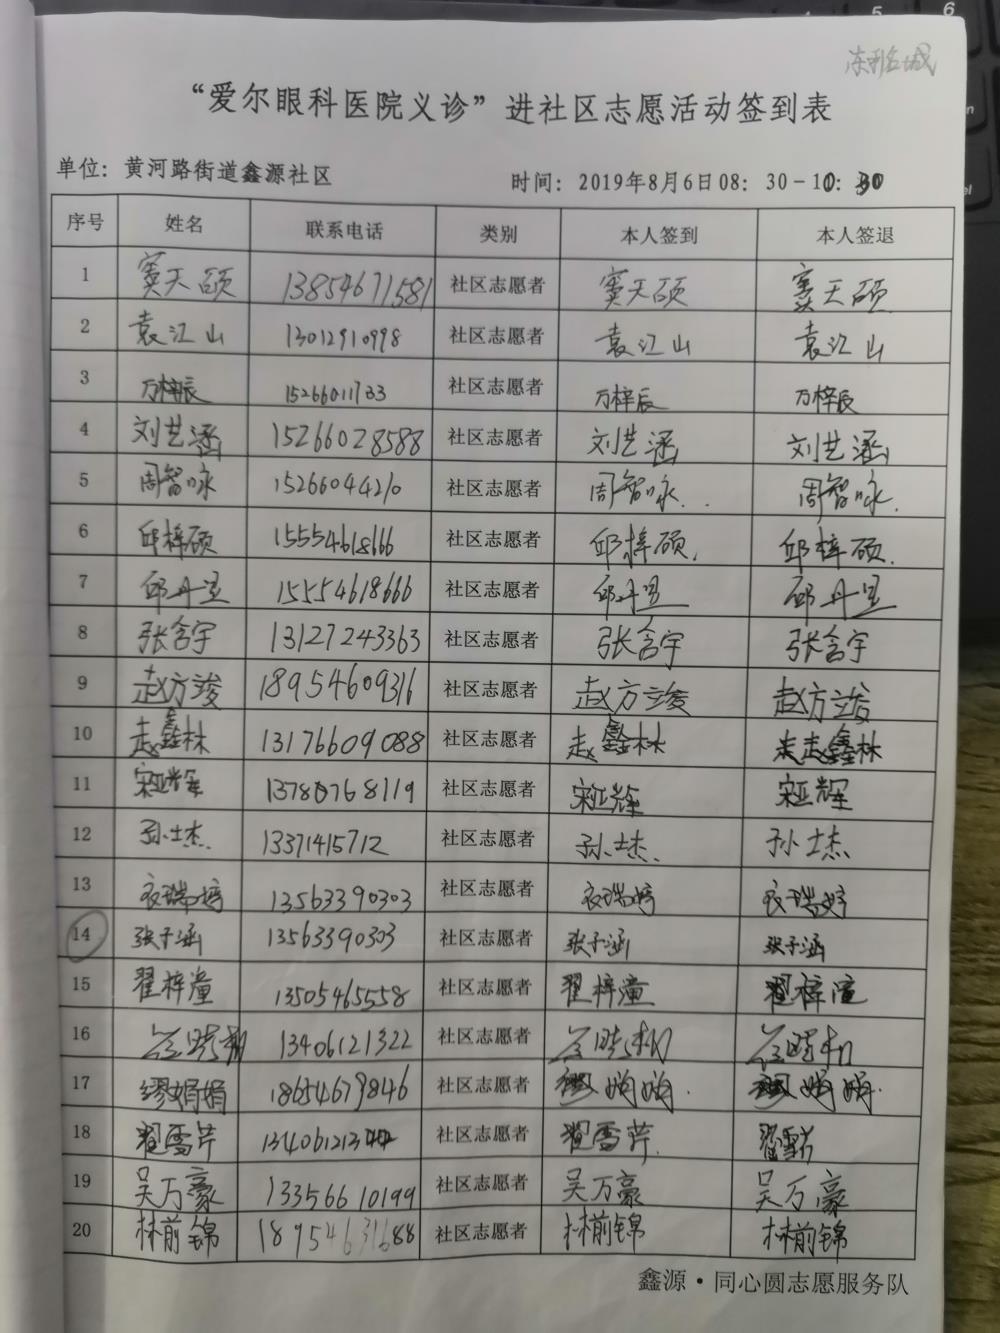 东利名城
“爱尔眼科医院义诊”进社区志愿活动签到表
单位：黄河路街道鑫源社区 时间：2019年8月6日08：30-10：30
序号 姓名 联系电话 类别 本人签到 本人签退
1 窦天硕 13854671581 社区志愿者 窦天硕 窦天硕
2 袁江山 13012910998 社区志愿者 袁江山 袁江山
3 万梓辰 15266011733 社区志愿者 万梓辰 万梓辰
4 刘艺涵 15266028588 社区志愿者 刘艺涵 刘艺涵
5 周智咏 15266044210 社区志愿者 周智咏 周智咏
6 邱梓硕 15554618666 社区志愿者 邱梓硕 邱梓硕
7 邱丹 15554618666 社区志愿者 邱丹 邱丹
8 张含宇 13127243363 社区志愿者 张含宇 张含宇
9 赵方竣 18954609316 社区志愿者 赵方竣 赵方竣
10 赵鑫林 13176609088 社区志愿者 赵鑫林 赵鑫林
11 宋亚辉 13780768119 社区志愿者 宋亚辉 宋亚辉
12 孙士杰 13371415712 社区志愿者 孙士杰 孙士杰
13 衣瑞婷 13563390303 社区志愿者 衣瑞婷 衣瑞婷
14 张子涵 13563390303 社区志愿者 张子涵 张子涵
15 翟梓潼 13505465558 社区志愿者 翟梓潼 翟梓潼
16 13406121322 社区志愿者
17 缪娟娟 18654679846 社区志愿者 缪娟娟 缪娟娟
18 翟雪芹 社区志愿者 翟雪芹 翟雪芹
19 吴万豪 13356610199 社区志愿者 吴万豪 吴万豪
20 林前锦 18954631688 社区志愿者 林前锦 林前锦
鑫源·同心圆志愿服务队